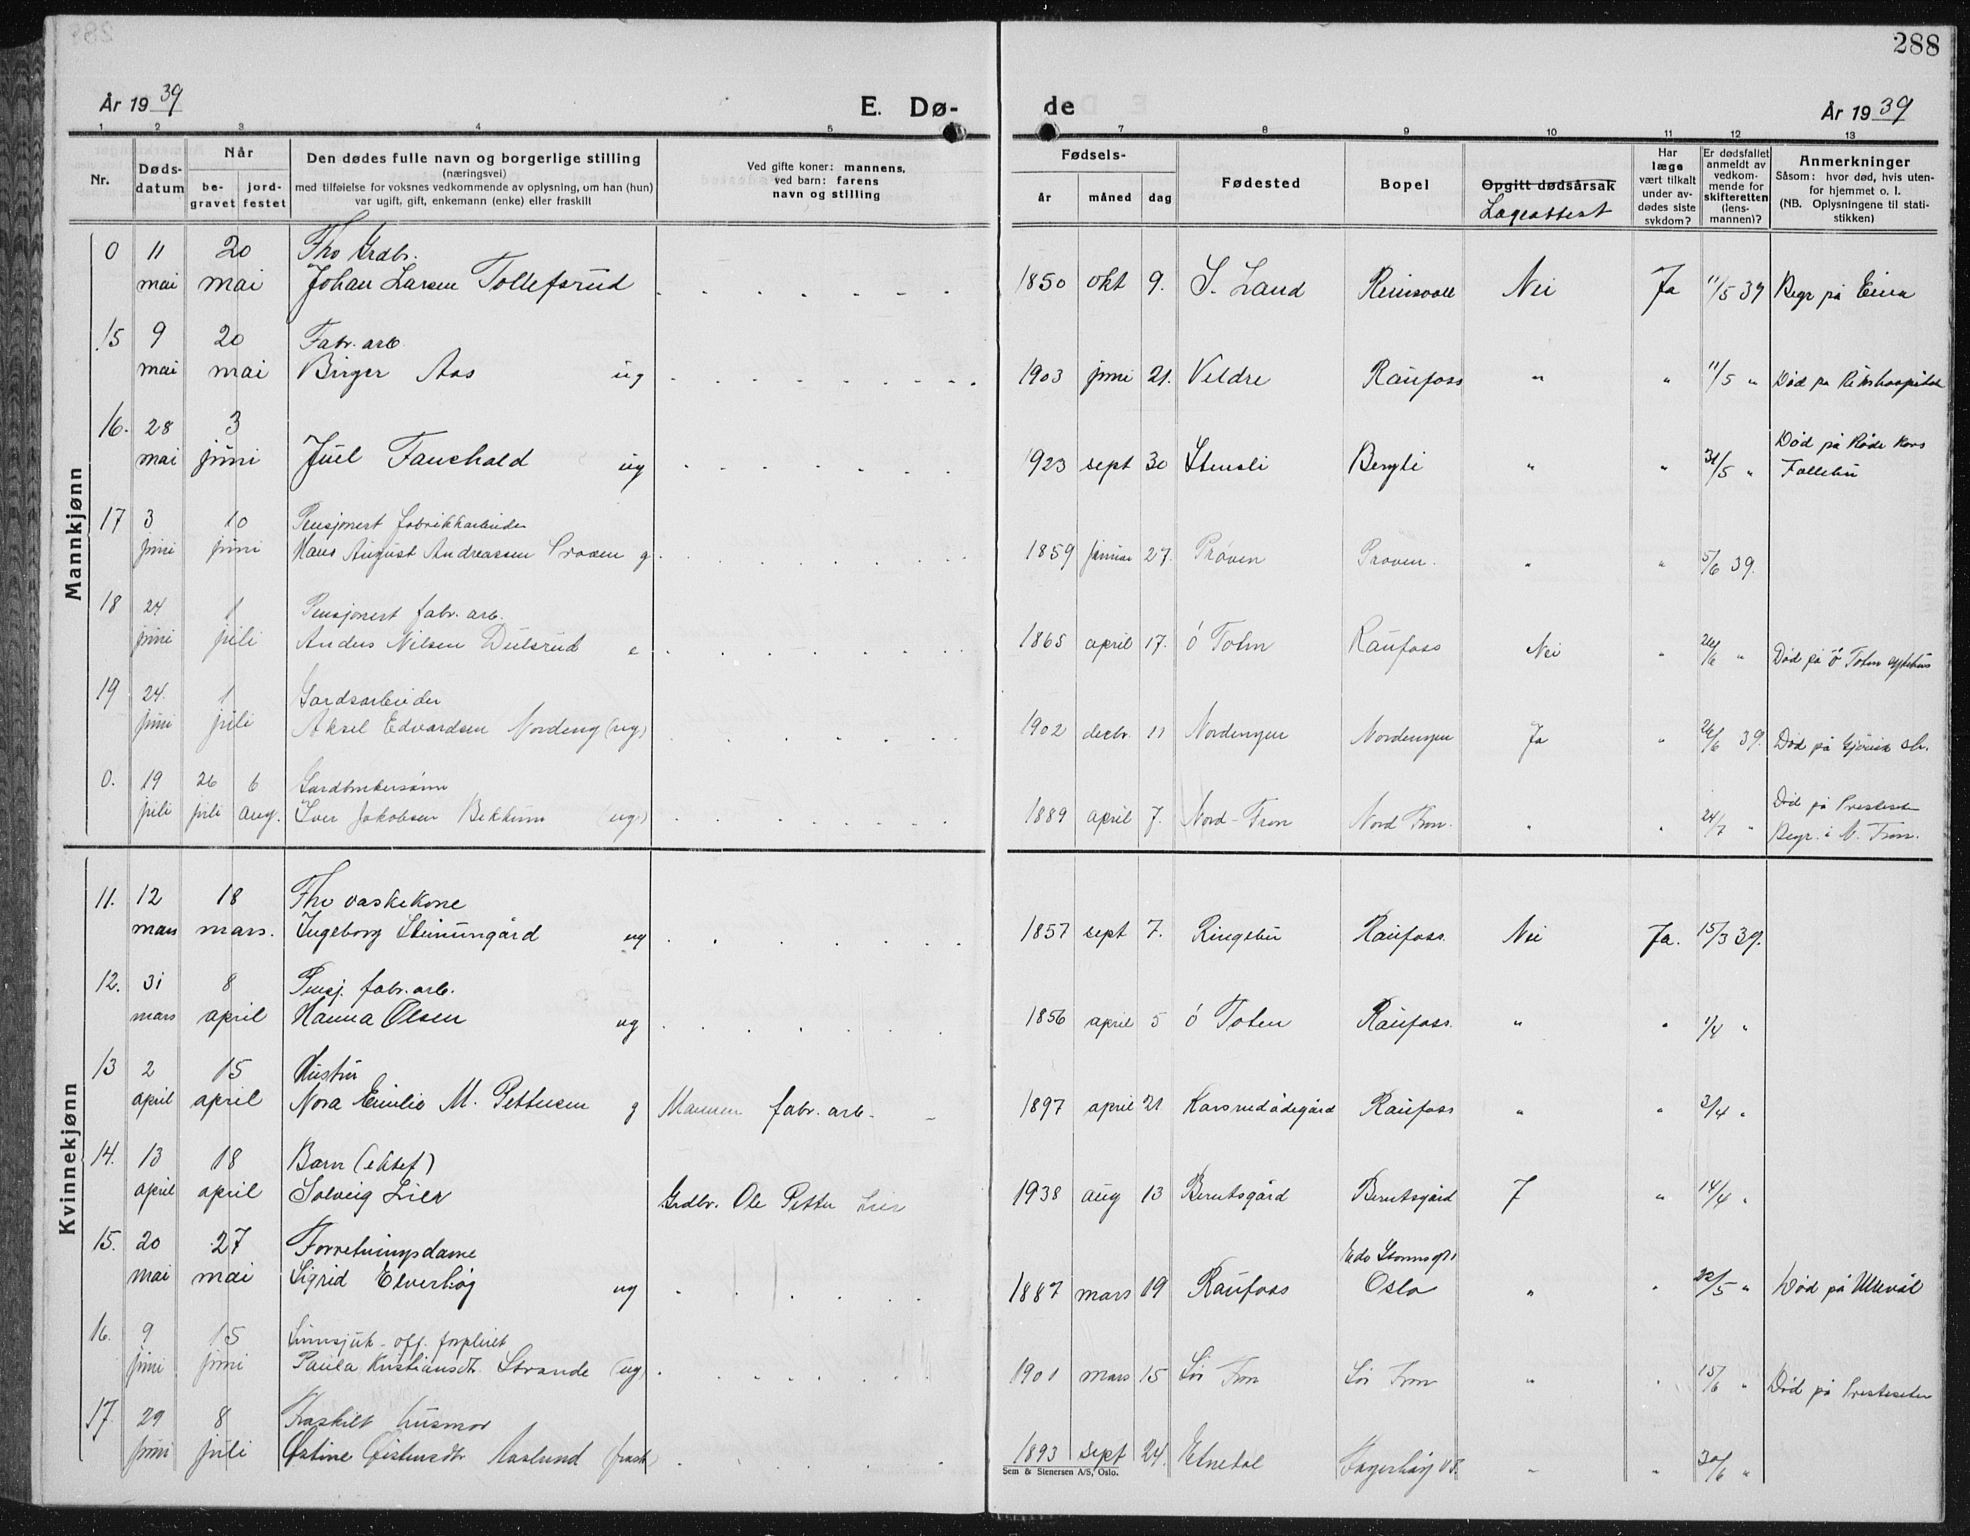 288
År 1939
E. Dø-
de
År 1939
1 2 3 4 5 7 8 9 10 11 12 13
Nr.
Døds-
datum
Når
be-
gravet
jord-
festet
Den dødes fulle navn og borgerlige stilling
(næringsvei)
med tilføielse for voksnes vedkommende av oplysning, om han (hun)
var ugift, gift, enkemann (enke) eller fraskilt
Ved gifte koner: mannens,
ved barn: farens
navn og stilling
Fødsels-
år måned dag
Fødested
Bopel
Opgitt dødsårsak
Lægeattest
Har
læge
vært tilkalt
under av-
dødes siste
sykdom?
Er dødsfallet
anmeldt av
vedkom-
mende for
skifteretten
(lens-
mannen)?
Anmerkninger
Såsom: hvor død, hvis uten-
for hjemmet o. l.
(NB. Oplysningene til stati-
stikken)
Mannkjønn
0 11 20 Fhv Grdbr.
mai mai Johan Larsen Tollefsrud 1850 okt 9. S. Land Reinsvoll Nei Ja 11/5 39 Begr på Eina
15 9 20 Fabr. arb.
mai mai Birger Aas ug 1903 juni 21. Veldre Raufoss " " 11/5 " Død på Rikshospitalet
16. 28 3 Død på Røde Kors
mai juni Juel Fauchald ug 1923 sept 30 Stensli Bergli " " 31/5 " Follebu
17 3 10 Pensjonert fabrikkarbeider
juni juni Hans August Andreassen Prøven g. 1859 januar 27. Prøven Prøven. " " 5/6 39.
18 24 1 Pensjonert fabr. arb.
juni juli Anders Nilsen Dulsrud e 1865 april 17. Ø Toten Raufoss Nei " 26/6 " Død på Ø Toten sykehus
19 24. 1 Gardsarbeider
juni juli Aksel Edvardsen Nordeng (ug) 1902 decbr. 11 Nordengen Nordengen Ja " 26/6 39. Død på Gjøvik sh.
0. 19 26 6 Gardbrukersønn Død på Presteseter
juli juli aug. Iver Jakobsen Bekkum (ug.) 1889 april 7. Nord-Fron Nord Fron. " " 24/7 " Begr. i N. Fron.
Kvinnekjønn
11. 12 18 Fhv vaskekone
mars mars. Ingeborg Steinumgård ug 1857 sept 7. Ringebu Raufoss. Nei Ja. 15/3 39.
12. 31 8 Pensj. fabr. arb.
mars april Hanna Olsen ug 1856 april 5 Ø Toten Raufoss. " " 1/4 "
13 2 15 Hustru
april april Nora Emilie M. Pettersen g Mannen fabr. arb. 1897 april 21 Karsrudødegård Raufoss " " 3/4 "
14. 13 18 Barn (ektef)
april april Solveig Lier Grdbr. Ole Petter Lier 1938 aug 13 Berntsgård Berntsgård J " 14/4 "
15. 20 27 Forretningsdame
mai mai Sigrid Elverhøg ug 1887 mars 19 Raufoss Oslo " " 22/5 " Død på Ullevål
16. 9 15 Sinnsjuk - off. forpleiet
juni juni Paula Kristiansdtr. Strande (ug) 1901 mars 15 Sør Fron Sør Fron " " 15/6 " Død på Presteseter
17. 29 8 Fraskilt husmor
juni juli Østine Øistensdtr Aaslund (frask) 1893 sept 24. Etnedal Fagerhøy VT. " " 30/6 "
Sem & Stenersen A/S, Oslo.